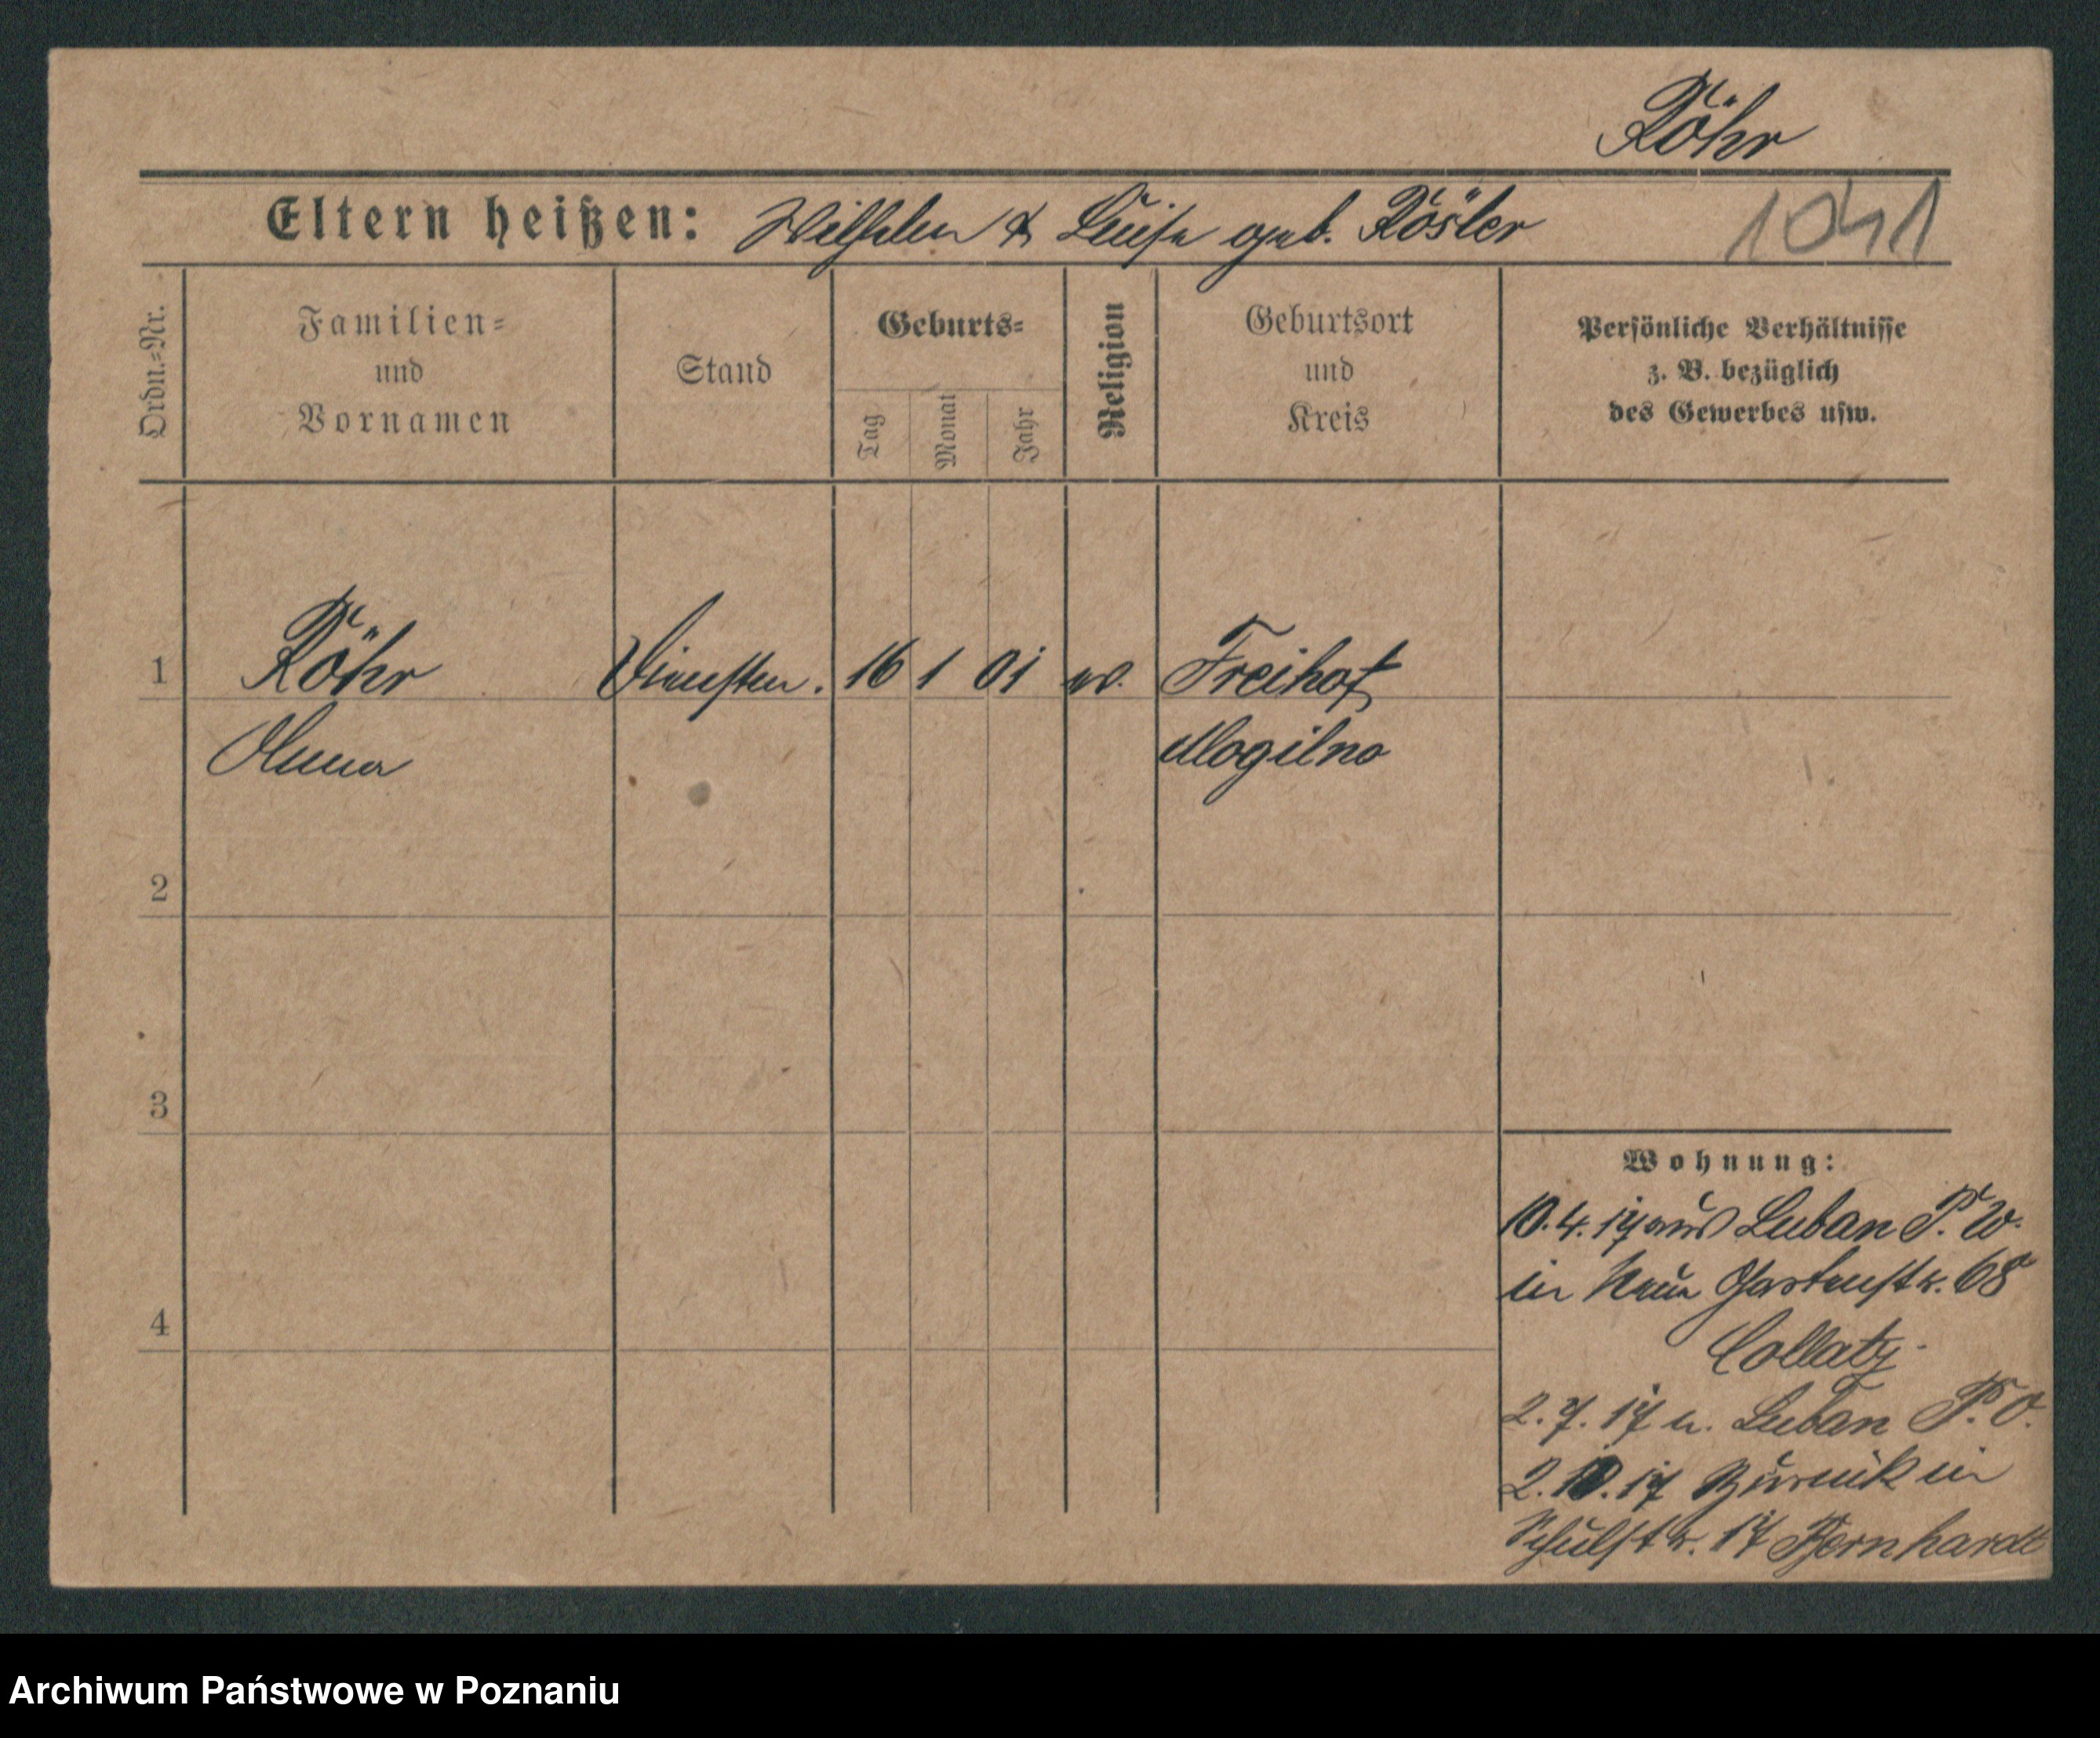 Röhr
Eltern heißen: Wilhelm & Luise geb. Rösler 1041
Ordn.=Nr.
Familien=
und
Vornamen
Stand
Geburts=
Tag
Monat
Jahr
Religion
Geburtsort
und
Kreis
Persönliche Verhältnisse
z. B. bezüglich
des Gewerbes usw.
1 Röhr Dienstm. 16 1 01 ev. Freihof
Anna Mogilno
2
3
4
Wohnung:
10.4.17 aus Luban P. W.
in Neue Gartenstr. 68
Collatz
2.7.17 n. Luban P. O.
2.10.17 zurück in
Schulstr. 17 Bernhardt
Archiwum Państwowe w Poznaniu